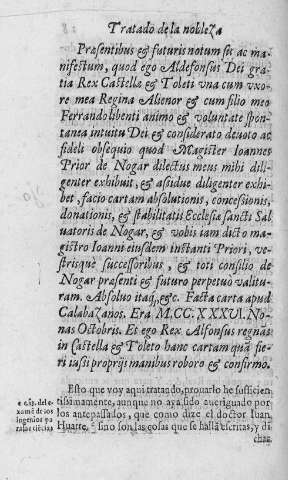 Tratado de la nobleza
Præsentibus & futuris notum sit ac ma-
nifestum, quod ego Aldefonsus Dei gra-
tia Rex Castella & Toleti vna cum vxo-
re mea Regina Alienor & cum filio meo
Ferrando libenti animo & voluntate spon-
tanea intuitu Dei & considerato deuoto ac
fideli obsequio quod Magister Ioannes
Prior de Nogar dilectus meus mihi dili-
genter exhibuit, & assidue diligenter exhi-
bet, facio cartam absolutionis, concesionis,
donationis, & stabilitatis Ecclesiæ sancti Sal
uatoris de Nogar, & vobis iam dicto ma-
gistro Ioanni eiusdem instanti Priori, ve-
strisque successoribus, & toti consilio de
Nogar præsenti & futuro perpetuo valitu-
ram. Absoluo itaq;, &c. Facta carta apud
Calabazanos. Era M.CC.XXXVI. No-
nas Octobris. Et ego Rex Alfonsus regnãs
in Castella & Toleto hanc cartam quã fie-
ri iussi proprijs manibus roboro & confirmo.
Esto que voy aqui tratado, prouarlo he suficien
tissimamente, aunque no aya sido aueriguado por
los antepassados, que como dize el doctor Iuan
Huarte, sino son las cosas que se hallã escritas, y di
chas
xame de los
ingenios pa
ra las ciẽcias